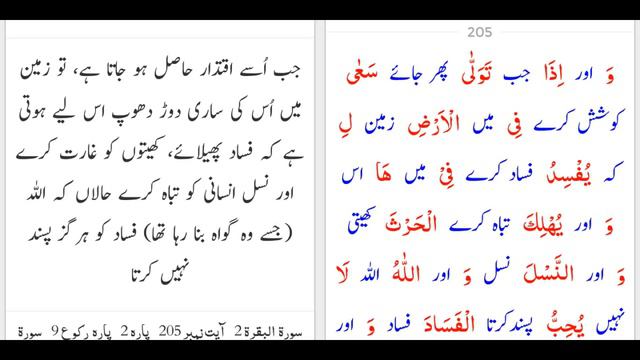 205
وَ اور اِذَا جب تَوَلّٰى پھر جائے سَعٰى
کوشش کرے فِى میں الْاَرْضِ زمین لِ
کہ يُفْسِدُ فساد کرے فِىْ میں هَا اس
وَ اور يُهْلِكَ تباہ کرے الْحَرْثَ کھیتی
وَ اور النَّسْلَ نسل وَ اور اللّٰهُ اللہ لَا
نہیں يُحِبُّ پسند کرتا الْفَسَادَ فساد وَ اور
جب اُسے اقتدار حاصل ہو جاتا ہے، تو زمین
میں اُس کی ساری دوڑ دھوپ اس لیے ہوتی
ہے کہ فساد پھیلائے، کھیتوں کو غارت کرے
اور نسل انسانی کو تباہ کرے حالاں کہ اللہ
(جسے وہ گواہ بنا رہا تھا) فساد کو ہر گز پسند
نہیں کرتا
سورۃ البقرۃ 2 آیت نہبر 205 پارہ 2 پارہ رکوع 9 سورۃ